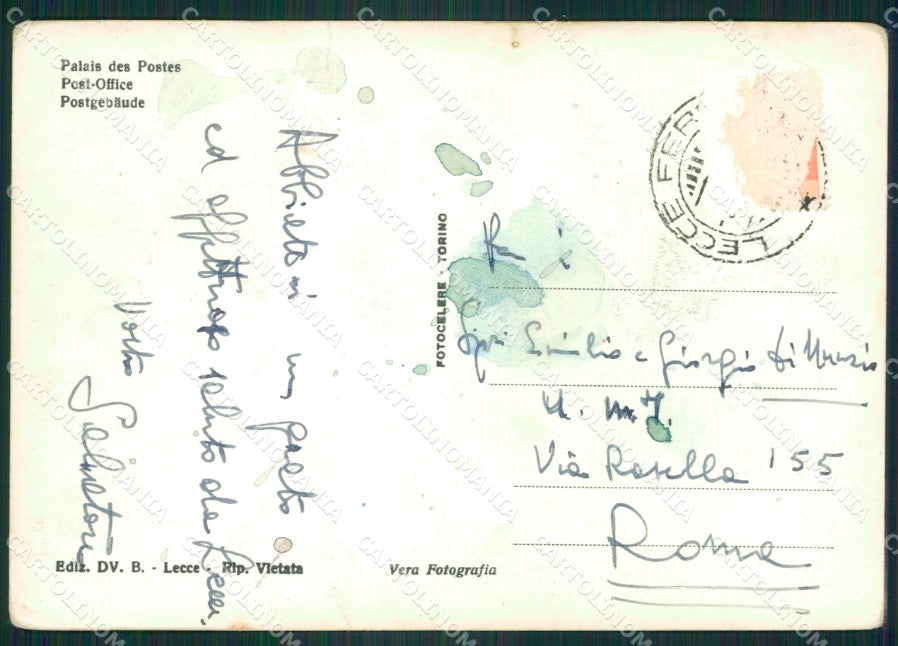 Palais des Postes
Post-Office
Postgebäude
Abbiatevi un grato
ed affettuoso saluto da Lecce.
Vostro Salvatore
FOTOCELERE - TORINO
LECCE FER
Sigri Emilio e Giorgio Di Nunzio
Via Rasella 155
Roma
Ediz. DV. B. - Lecce - Rip. Vietata
Vera Fotografia
CARTOLINOMANIA